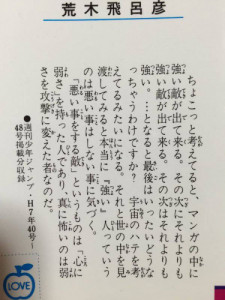 荒木飛呂彦
ちょこっと考えてると、マンガの中に
強い敵が出て来る。その次にそれよりも
強い敵が出て来る。その次はそれよりも
強い。…となると最後はいったいどうな
っちゃうわけですか？ 宇宙のハテを考
えてるみたいになる。それと世の中を見
渡してみると本当に「強い」人っていう
のは悪い事はしない事に気づく。
「悪い事をする敵」というものは「心に
弱さ」を持った人であり、真に怖いのは弱
さを攻撃に変えた者なのだ。
●週刊少年ジャンプ・H7年40号〜
48号掲載分収録
LOVE